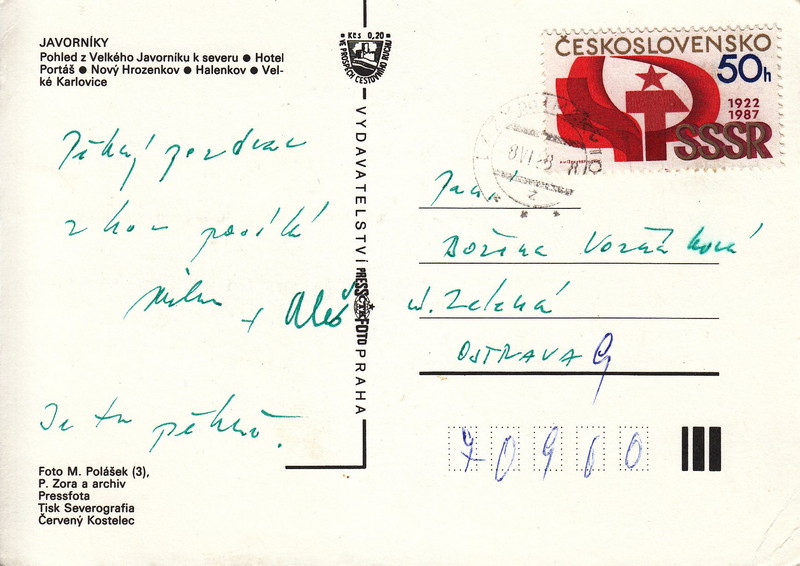 JAVORNÍKY
Pohled z Velkého Javorníku k severu ● Hotel
Portáš ● Nový Hrozenkov ● Halenkov ● Vel-
ké Karlovice
Pěkný pozdrav
z hor posílá
Milan + Aleš
Je tu pěkně.
Foto M. Polášek (3),
P. Zora a archiv
Pressfota
Tisk Severografia
Červený Kostelec
Kčs 0,20
VE PROSPĚCH CESTOVNÍHO RUCHU
VYDAVATELSTVÍ PRESSFOTO PRAHA
ČESKOSLOVENSKO
50h
1922
1987
SSSR
Božena
ul. Zelená
OSTRAVA 9
70900